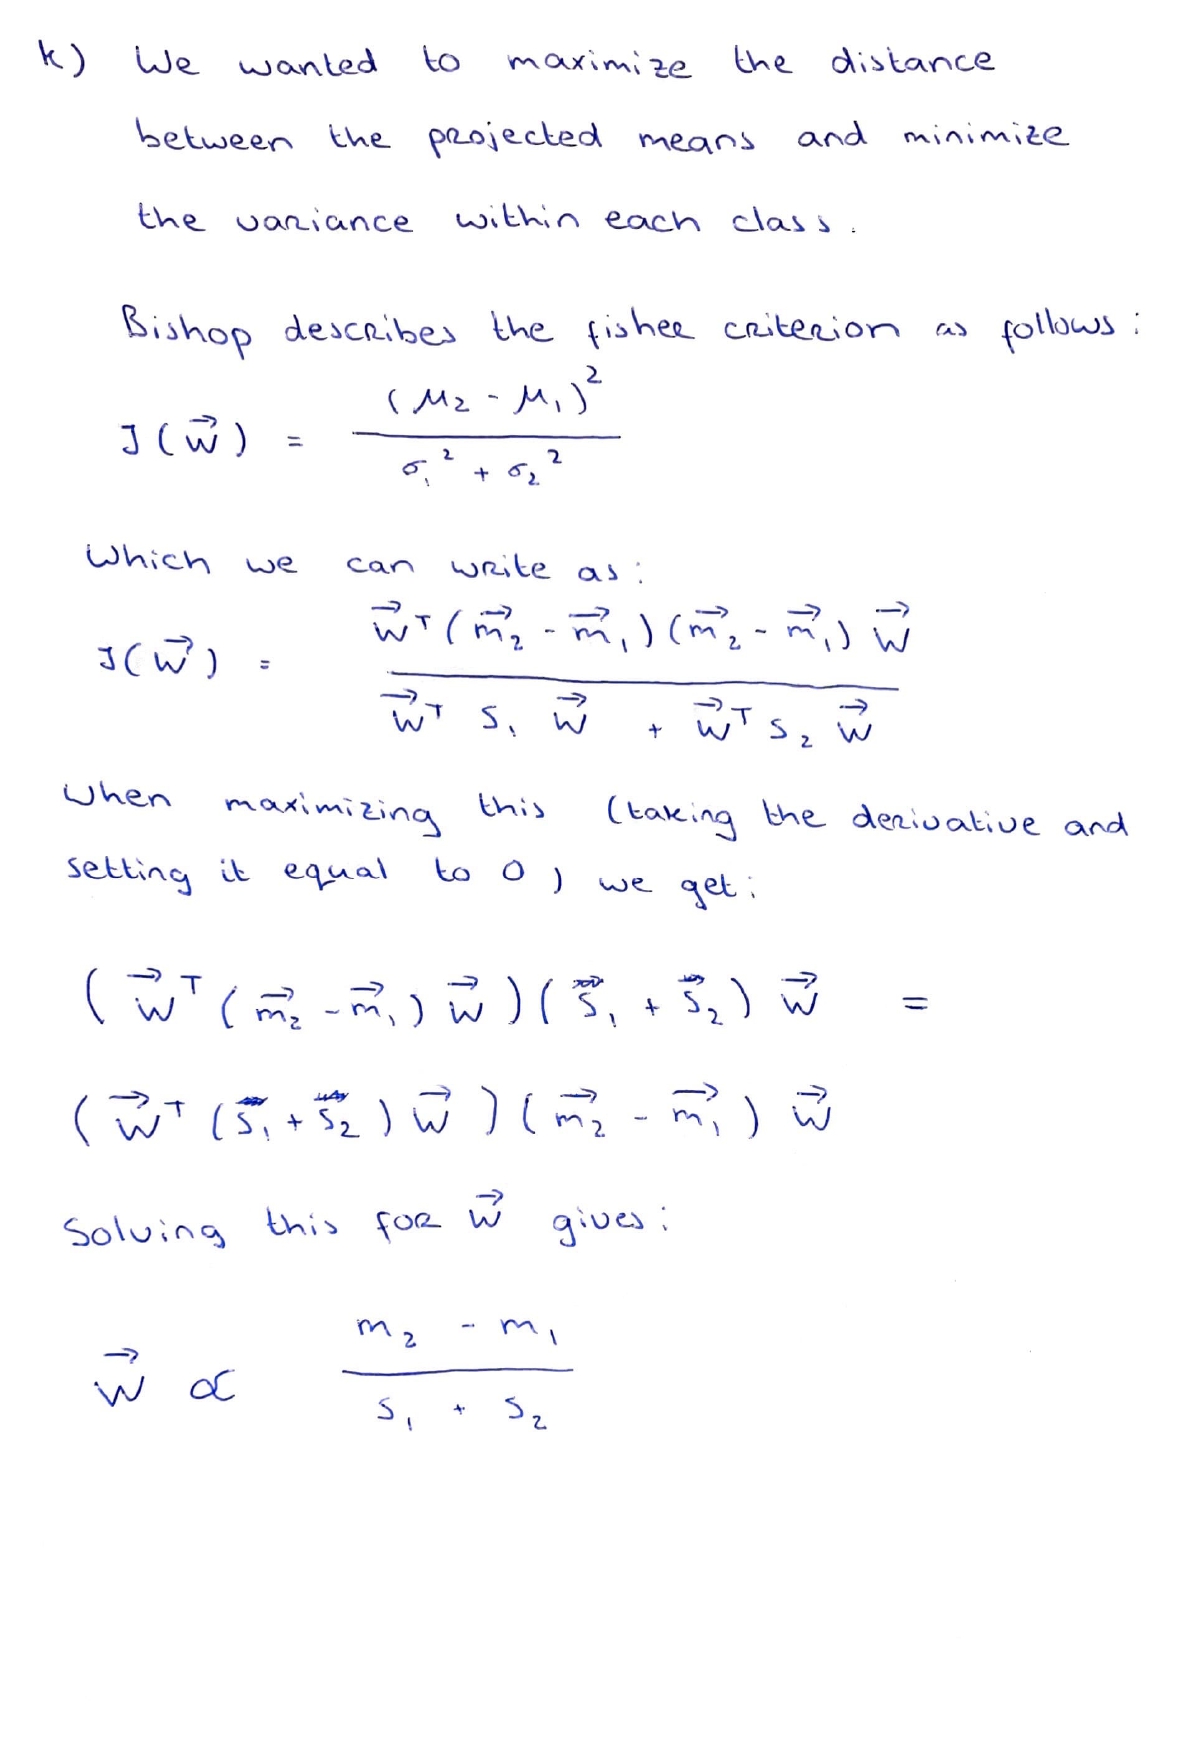 k) We wanted to maximize the distance
between the projected means and minimize
the variance within each class.
Bishop describes the fisher criterion as follows:
J(w⃗) = (μ₂ - μ₁)² / σ₁² + σ₂²
Which we can write as:
J(w⃗) = w⃗ᵀ(m⃗₂ - m⃗₁)(m⃗₂ - m⃗₁) w⃗ / w⃗ᵀ S₁ w⃗ + w⃗ᵀ S₂ w⃗
When maximizing this (taking the derivative and
setting it equal to 0) we get:
(w⃗ᵀ(m⃗₂ - m⃗₁) w⃗)(S₁ + S₂) w⃗ =
(w⃗ᵀ(S₁ + S₂) w⃗)(m⃗₂ - m⃗₁) w⃗
Solving this for w⃗ gives:
w⃗ ∝ m₂ - m₁ / S₁ + S₂